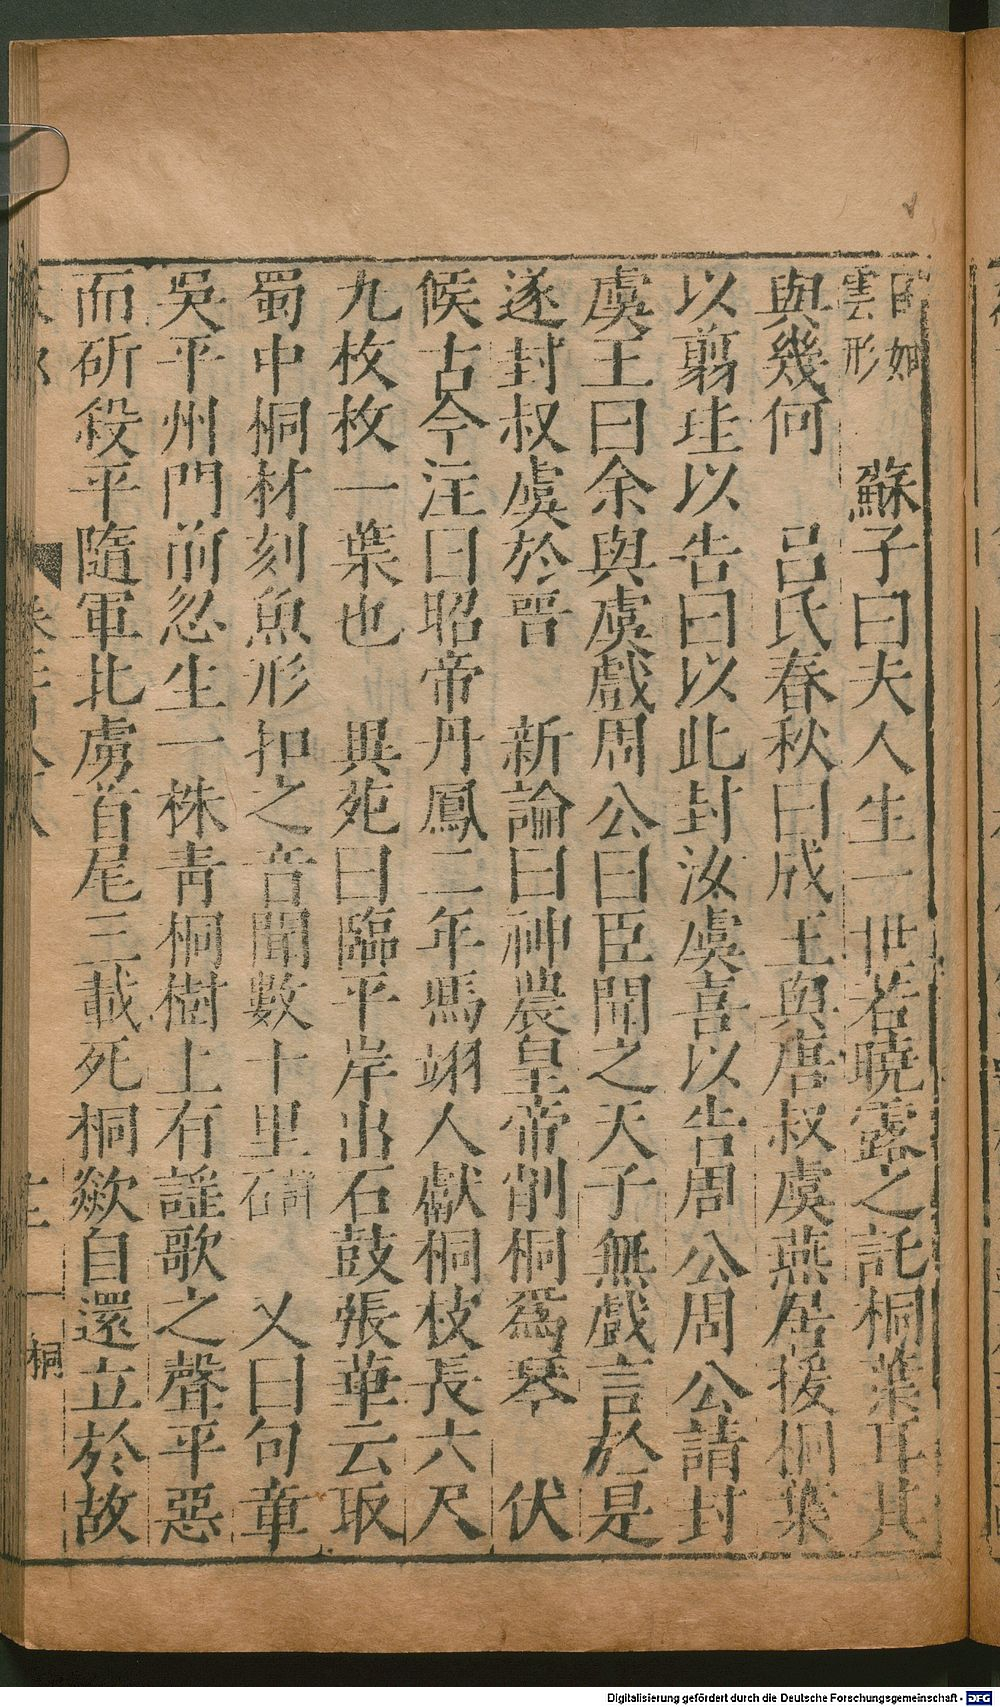 如
雲形　蘇子曰夫人生一世若曉露之託桐葉耳其
與幾何　呂氏春秋曰成王與唐叔虞燕居援桐葉
以剪珪以告曰以此封汝虞喜以告周公周公請封
虞王曰余與虞戲周公曰臣聞之天子無戲言於是
遂封叔虞於晉　新論曰神農皇帝削桐爲琴　伏
侯古今注曰昭帝丹鳳二年馮翊人獻桐枝長六尺
九枚枚一葉也　異苑曰臨平岸出石鼓張華云取
蜀中桐材刻魚形扣之音聞數十里　又曰句章
吳平州門前忽生一株青桐樹上有謡歌之聲平惡
而斫殺平隨軍北虜首尾三載死桐歘自還立於故
桐
Digitalisierung gefördert durch die Deutsche Forschungsgemeinschaft - DFG